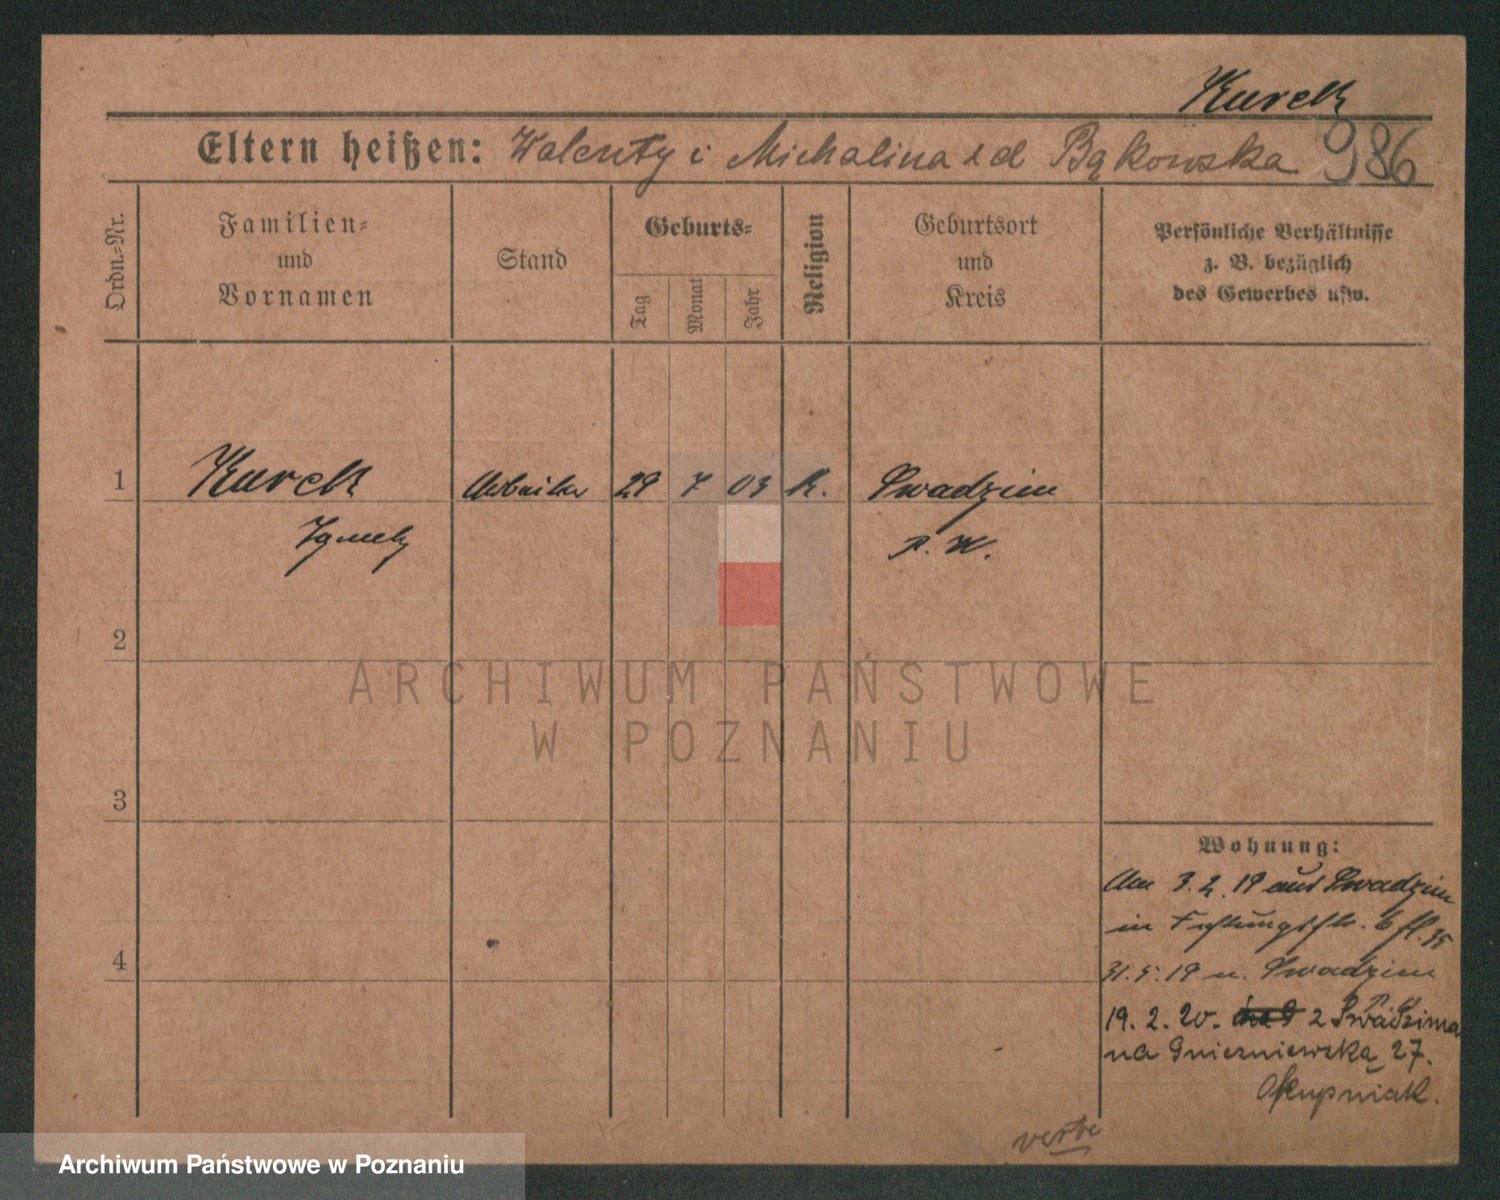 Kurek
Eltern heißen: Walenty i Michalina z d Bąkowska 986
Ordn.-Nr.
Familien-
und
Vornamen
Stand
Geburts-
Tag
Monat
Jahr
Religion
Geburtsort
und
Kreis
Persönliche Verhältnisse
z. B. bezüglich
des Gewerbes usw.
1 Kurek Arbeiter 29 7 03 K. Swadzim
Ignatz P. W.
2
ARCHIWUM PAŃSTWOWE
W POZNANIU
3
Wohnung:
Am 3.2.19 aus Swadzim
in 6
4
31.5.19 n. Swadzim
19.2.20. z Swadzima
na Gnieźniewską 27.
verte
Archiwum Państwowe w Poznaniu